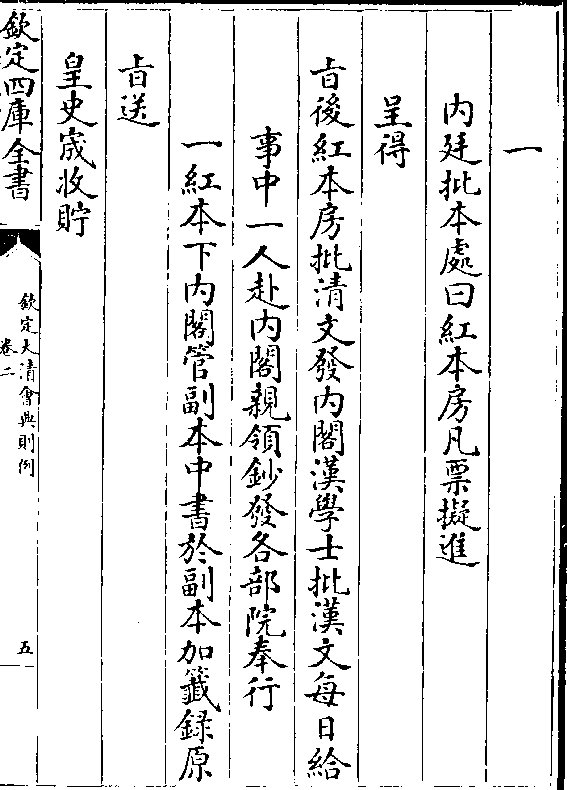 一
内廷批本處曰紅本房凡票擬進
呈得
㫖後紅本房批清文發内閣漢學士批漢文每日給
事中一人赴内閣親領鈔發各部院奉行
一紅本下内閣管副本中書於副本加籤録原
㫖送
皇史宬收貯
欽定四庫全書
欽定大清會典則例
卷二
五